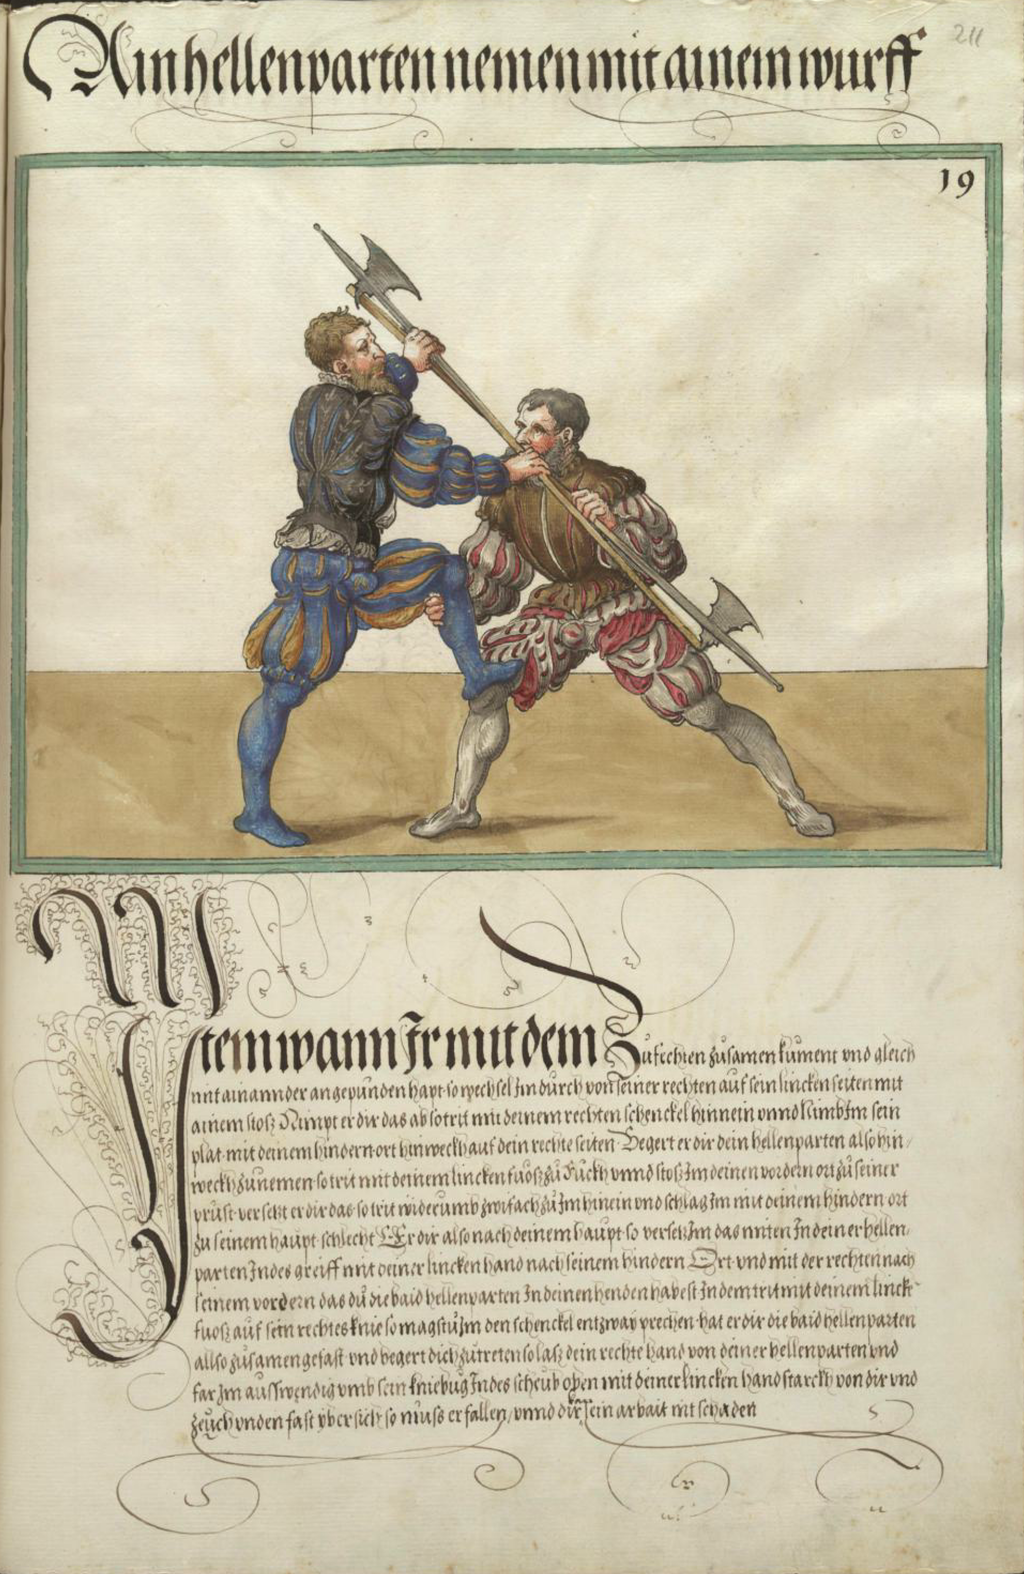 Ain hellenparten nemen mit ainem wurff
211
19
Item wann Ir mit dem Zufechten zusamen kument vnd gleich
mit ainannder angepunden hapt so wechsel Im durch von seiner rechten auf sein lincken seiten mit
ainem stosz Nimpt er dir das ab so trit mit deinem rechten schenckel hinnein vnnd Nimb Im sein
plat mit deinem hindern ort hinweckh auf dein rechte seiten Begert er dir dein hellenparten also hin
weckh zunemen so trit mit deinem lincken fuosz zu Ruckh vnnd stosz Im deinen vordern ort zu seiner
prust versetzt er dir das so trit widerumb zwifach zu Im hinein vnd schlag Im mit deinem hindern ort
zu seinem haupt schlecht Er dir also nach deinem haupt so versetz Im das miten In deiner hellen
parten Indes greiff mit deiner lincken hand nach seinem hindern Ort vnd mit der rechten nach
seinem vordern das du die baid hellenparten In deinen henden habest In dem trit mit deinem linck
fuosz auf sein rechtes knie so magstu Im den schenckel entzway prechen hat er dir die baid hellenparten
allso zusamen gefast vnd begert dich zutreten so lasz dein rechte hand von deiner hellenparten vnd
far Im ausswendig vmb sein kniebug Indes scheub oben mit deiner lincken hand starckh von dir vnd
zeuch vnden fast yber sich so muss er fallen vnnd dir sein arbait nit schaden